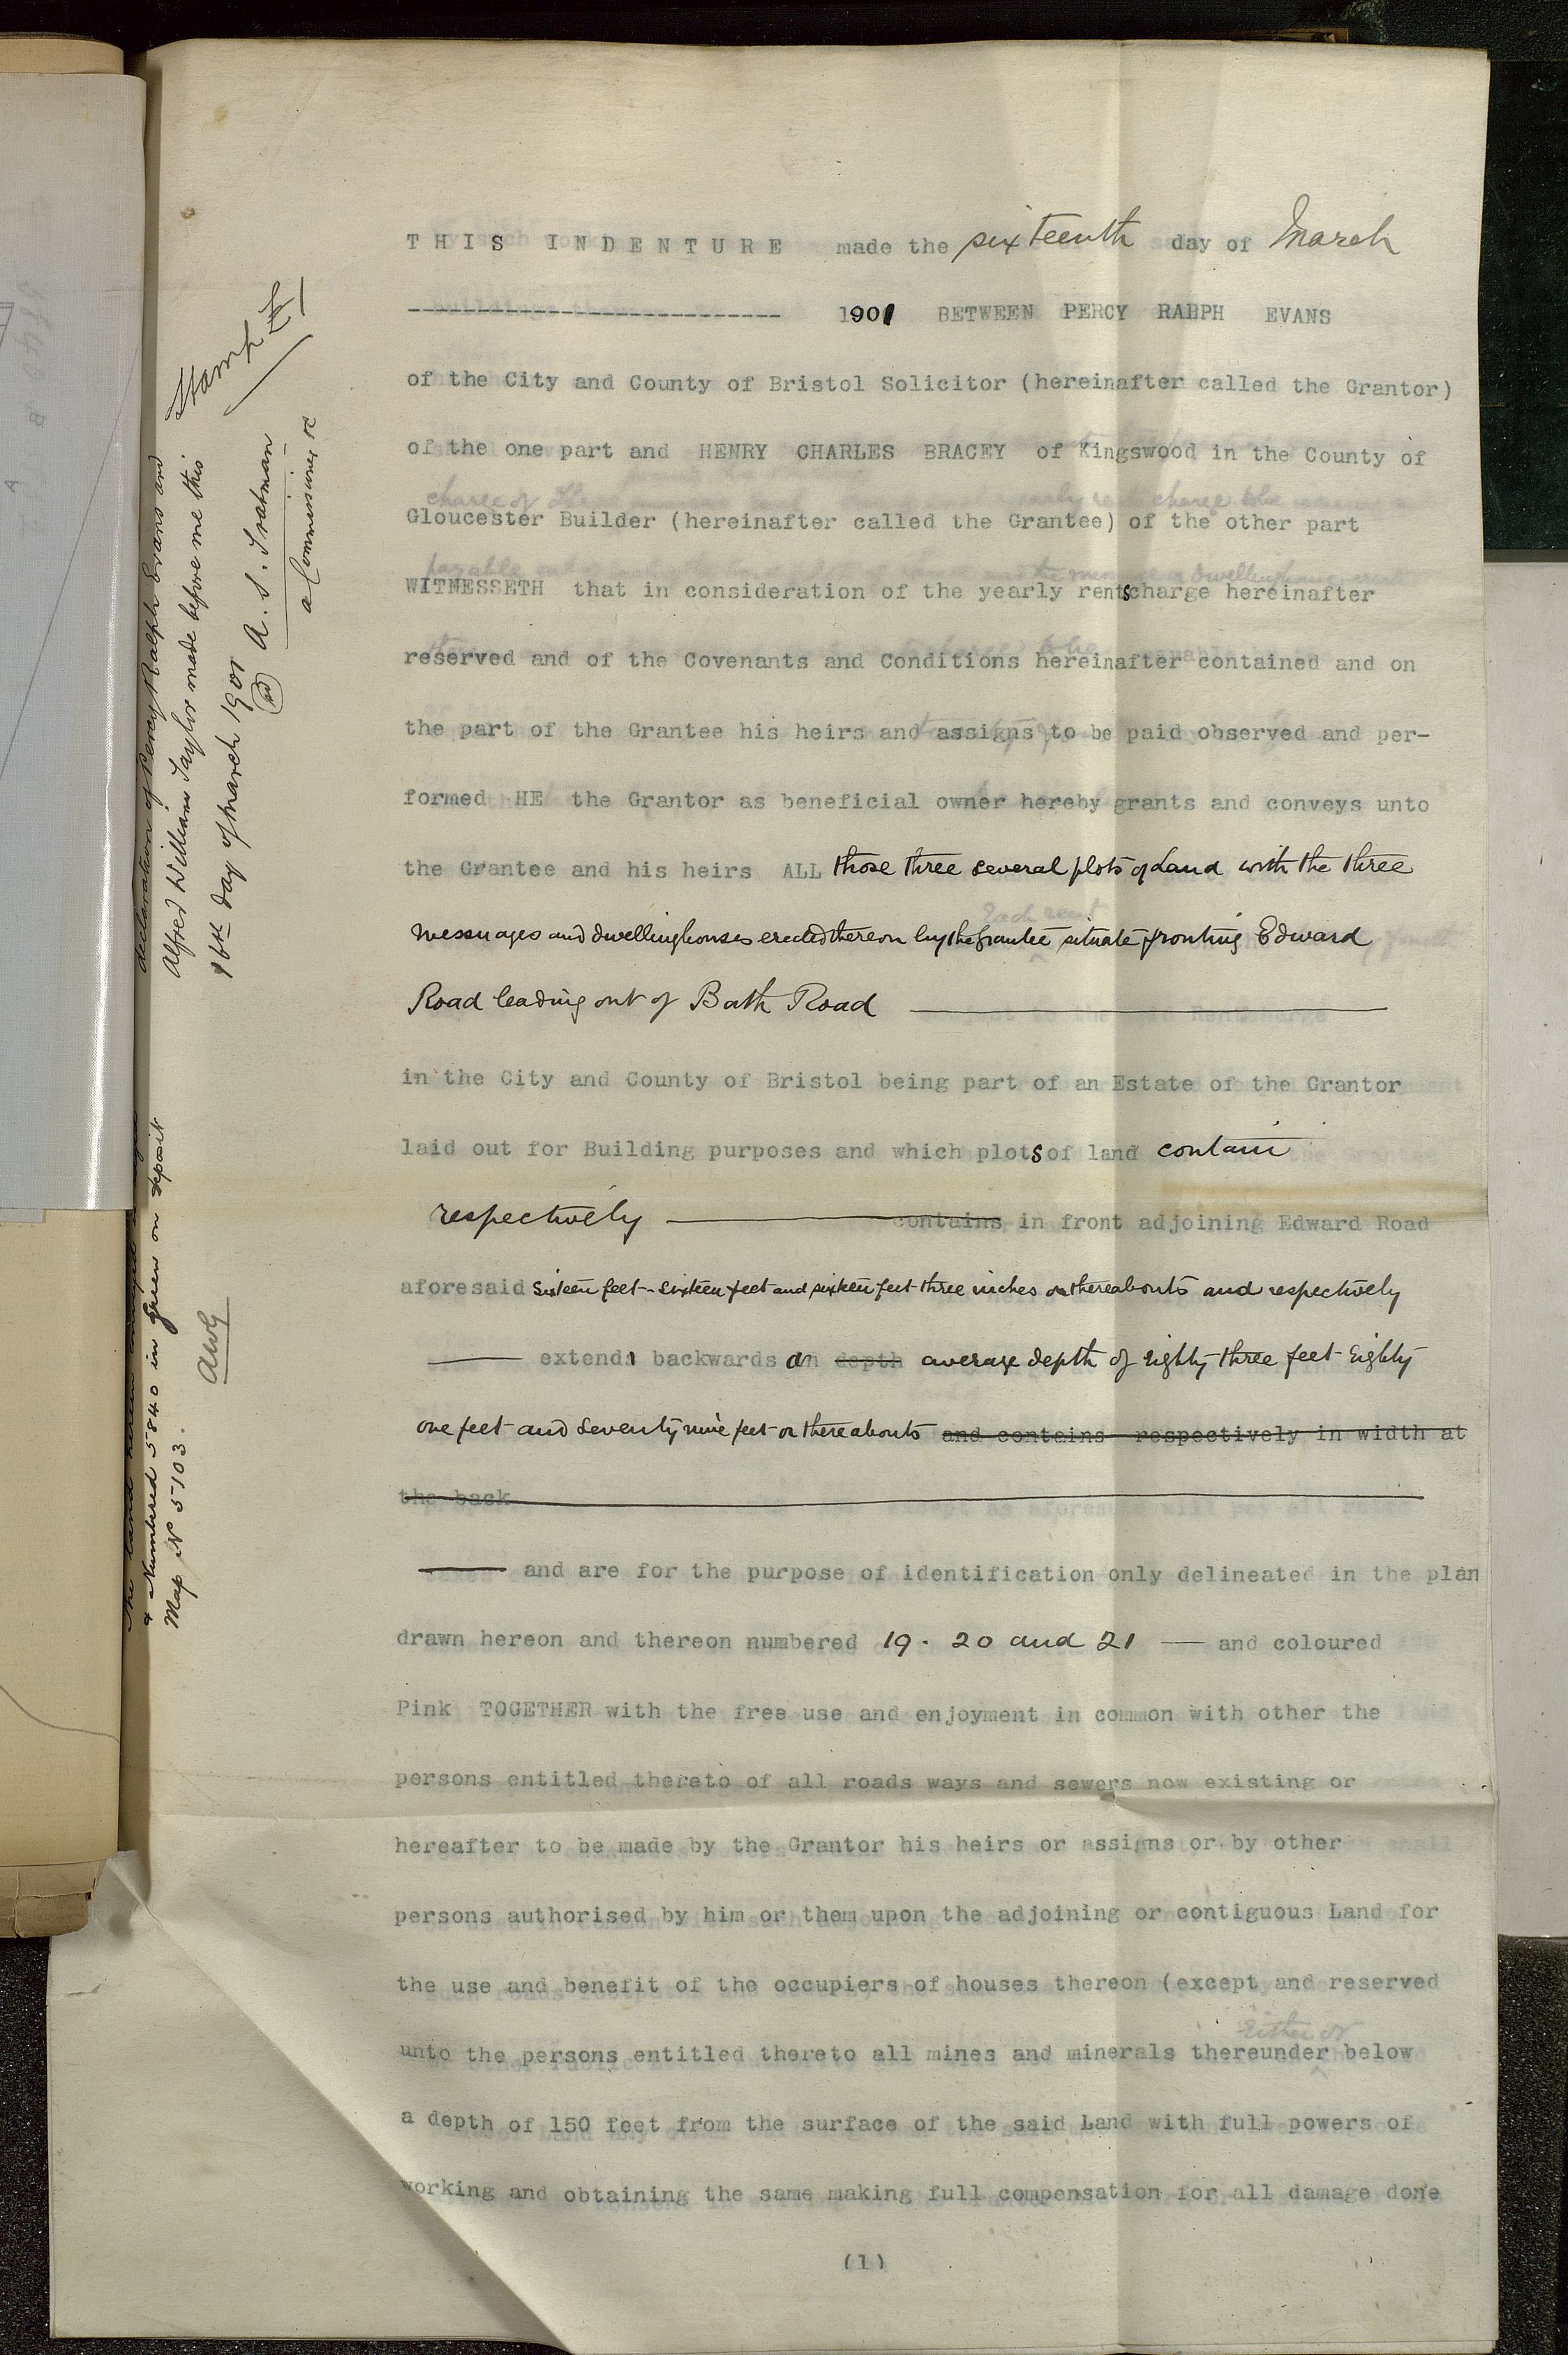 THIS INDENTURE made the sixteenth day of March
1901 BETWEEN PERCY RALPH EVANS
of the City and County of Bristol Solicitor (hereinafter called the Grantor)
of the one part and HENRY CHARLES BRACEY of Kingswood in the County of
Gloucester Builder (hereinafter called the Grantee) of the other part
WITNESSETH that in consideration of the yearly rentscharge hereinafter
reserved and of the Covenants and Conditions hereinafter contained and on
the part of the Grantee his heirs and assigns to be paid observed and per-
formed HE the Grantor as beneficial owner hereby grants and conveys unto
the Grantee and his heirs ALL those three several plots of Land with the three
messuages and dwellinghouses erected thereon by the Grantee situate fronting Edward
Road leading out of Bath Road
in the City and County of Bristol being part of an Estate of the Grantor
laid out for Building purposes and which plots of land contain
respectively contains in front adjoining Edward Road
aforesaid sixteen feet - sixteen feet and sixteen feet three inches or thereabouts and respectively
extend backwards an depth average depth of eighty three feet Eighty
one feet and seventy nine feet or thereabouts and contains respectively in width at
the back
and are for the purpose of identification only delineated in the plan
drawn hereon and thereon numbered 19. 20 and 21 — and coloured
Pink TOGETHER with the free use and enjoyment in common with other the
persons entitled thereto of all roads ways and sewers now existing or
hereafter to be made by the Grantor his heirs or assigns or by other
persons authorised by him or them upon the adjoining or contiguous Land for
the use and benefit of the occupiers of houses thereon (except and reserved
either or
unto the persons entitled thereto all mines and minerals thereunder below
a depth of 150 feet from the surface of the said Land with full powers of
working and obtaining the same making full compensation for all damage done
(1)
Stamp £1
declaration of Percy Ralph Evans and
Alfred William Taylor made before me this
16th day of March 1901
A. S.
a Commissioner &c
& Numbered 5840 in green on deposit
Map No 5103.